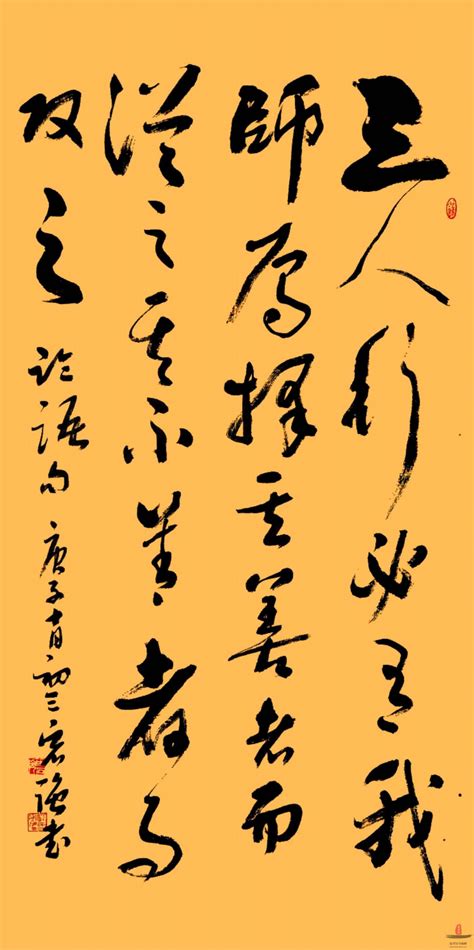 三人行必有我
師焉擇其善者而
從之其不善者而
改之 論語句 庚子十月初三 書